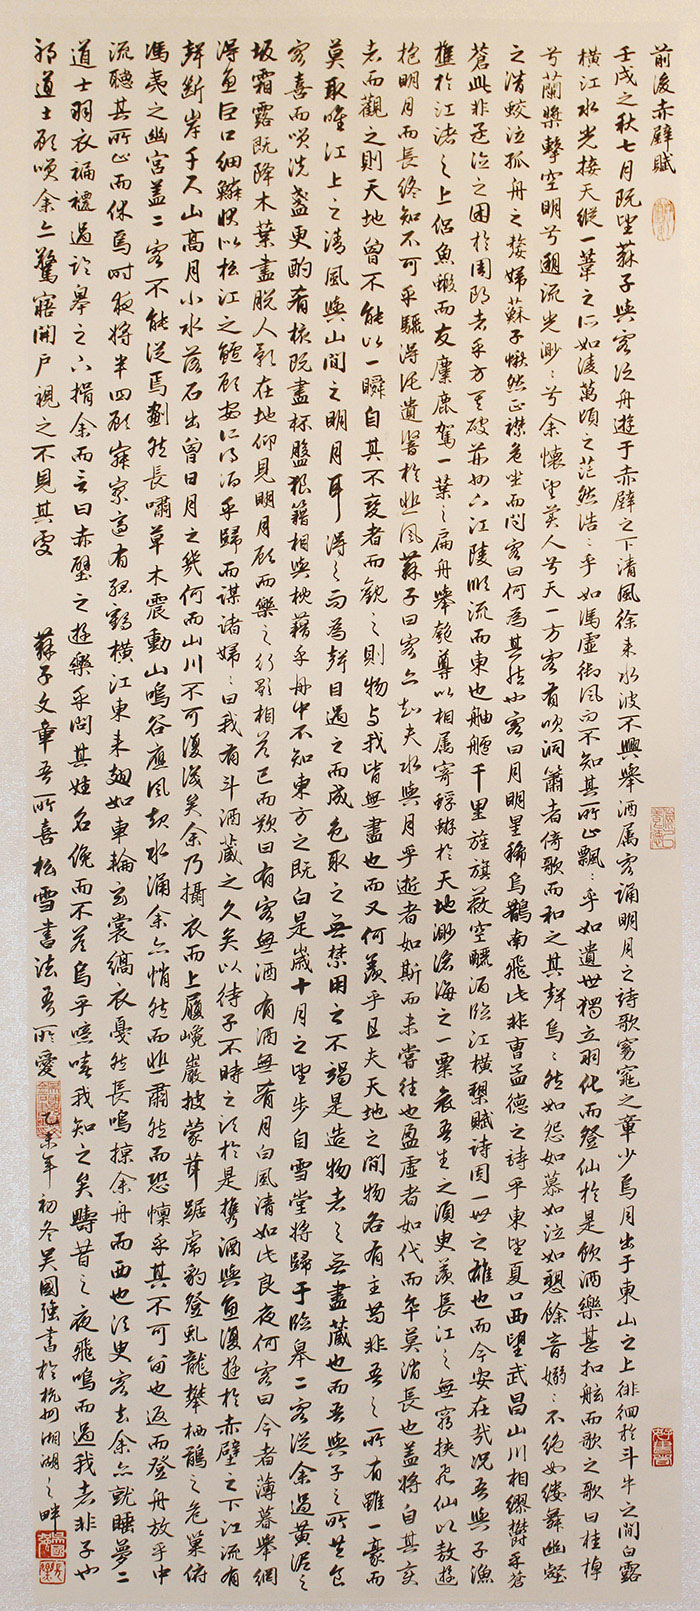 前後赤壁賦
壬戌之秋七月既望蘇子與客泛舟遊于赤壁之下清風徐來水波不興舉酒属客誦明月之詩歌窈窕之章少焉月出于東山之上徘徊於斗牛之間白露
橫江水光接天縱一葦之所如凌萬頃之茫然浩〻乎如馮虛御風而不知其所止飄〻乎如遺世獨立羽化而登仙於是飲酒樂甚扣舷而歌之歌曰桂棹
兮蘭槳擊空明兮遡流光渺〻兮余懷望美人兮天一方客有吹洞簫者倚歌而和之其聲嗚〻然如怨如慕如泣如愬餘音嫋〻不絕如縷舞幽壑
之潛蛟泣孤舟之嫠婦蘇子愀然正襟危坐而問客曰何為其然也客曰月明星稀烏鵲南飛此非曹孟德之詩乎東望夏口西望武昌山川相繆鬱乎蒼
蒼此非孟德之困於周郎者乎方其破荊州下江陵順流而東也舳艫千里旌旗蔽空釃酒臨江橫槊賦詩固一世之雄也而今安在哉況吾與子漁
樵於江渚之上侶魚蝦而友麋鹿駕一葉之扁舟舉匏尊以相属寄蜉蝣於天地渺滄海之一粟哀吾生之須臾羨長江之無窮挾飛仙以遨遊
抱明月而長終知不可乎驟得託遺響於悲風蘇子曰客亦知夫水與月乎逝者如斯而未嘗往也盈虛者如代而卒莫消長也蓋將自其變
者而觀之則天地曾不能以一瞬自其不變者而觀之則物与我皆無盡也而又何羨乎且夫天地之間物各有主苟非吾之所有雖一豪而
莫取唯江上之清風與山間之明月耳得之而為聲目遇之而成色取之無禁用之不竭是造物者之無盡藏也而吾與子之所共食
客喜而笑洗盞更酌肴核既盡杯盤狼籍相與枕藉乎舟中不知東方之既白是歲十月之望步自雪堂將歸于臨皋二客從余過黃泥之
坂霜露既降木葉盡脫人影在地仰見明月顧而樂之行歌相答已而歎曰有客無酒有酒無肴月白風清如此良夜何客曰今者薄暮舉網
得魚巨口細鱗狀似松江之鱸顧安所得酒乎歸而謀諸婦〻曰我有斗酒藏之久矣以待子不時之須於是攜酒與魚復遊於赤壁之下江流有
聲斷岸千尺山高月小水落石出曾日月之幾何而山川不可復識矣余乃攝衣而上履巉巖披蒙茸踞虎豹登虬龍攀栖鶻之危巢俯
馮夷之幽宮蓋二客不能從焉劃然長嘯草木震動山鳴谷應風起水涌余亦悄然而悲肅然而恐懍乎其不可留也返而登舟放乎中
流聽其所止而休焉時夜將半四顧寂寥適有孤鶴橫江東來翅如車輪玄裳縞衣戛然長鳴掠余舟而西也須臾客去余亦就睡夢二
道士羽衣褊褼過臨皋之下揖余而言曰赤壁之遊樂乎問其姓名俛而不答烏乎噫嘻我知之矣疇昔之夜飛鳴而過我者非子也
邪道士顧笑余亦驚寤開戶視之不見其處　蘇子文章吾所喜松雪書法吾所愛　乙未年初冬吴國強書於杭州湘湖之畔